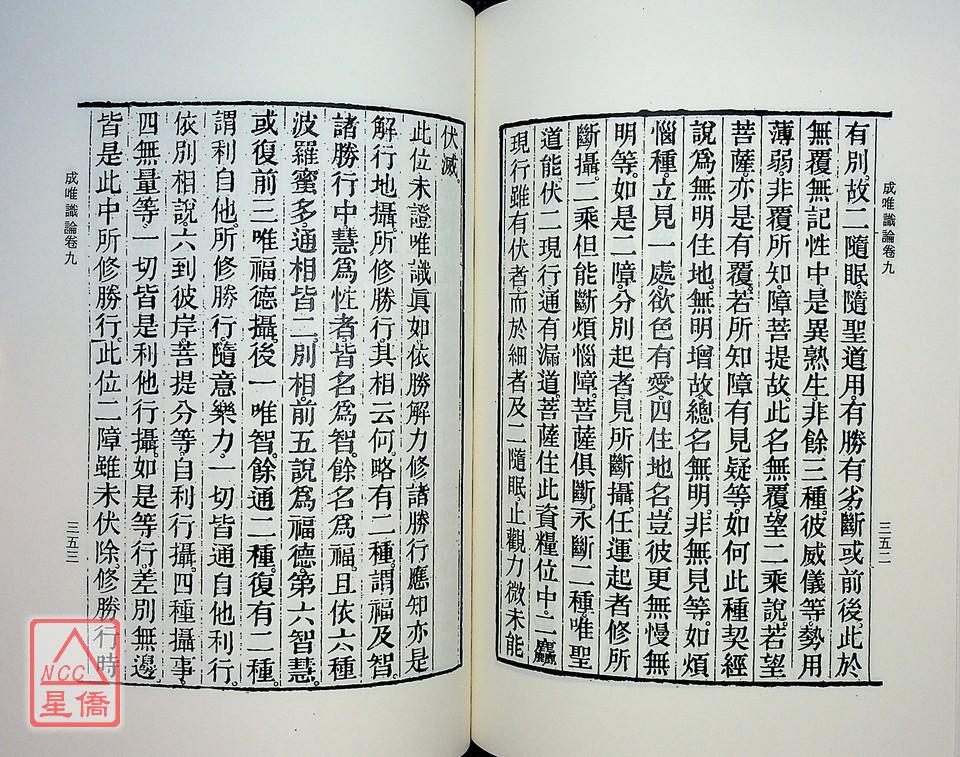 成唯識論卷九
三五二
有別。故二隨眠隨聖道用。有勝有劣。斷或前後。此於
無覆無記性中。是異熟生。非餘三種。彼威儀等。勢用
薄弱。非覆所知。障菩提故。此名無覆。望二乘說。若望
菩薩。亦是有覆。若所知障有見疑等。如何此種契經
說爲無明住地。無明增故。總名無明。非無見等。如煩
惱種。立見一處。欲色有愛。四住地名。豈彼更無慢無
明等。如是二障。分別起者。見所斷攝。任運起者。修所
斷攝。二乘但能斷煩惱障。菩薩俱斷。永斷二種。唯聖
道能伏二現行。通有漏道。菩薩住此資糧位中。二麤
現行雖有伏者。而於細者及二隨眠。止觀力微。未能
伏滅。
此位未證唯識眞如。依勝解力修諸勝行。應知亦是
解行地攝。所修勝行。其相云何。略有二種。謂福及智。
諸勝行中。慧爲性者。皆名爲智。餘名爲福。且依六種
波羅蜜多。通相皆二。別相。前五說爲福德。第六智慧。
或復前三唯福德攝。後一唯智。餘通二種。復有二種。
謂利自他。所修勝行。隨意樂力。一切皆通自他利行。
依別相說。六到彼岸菩提分等。自利行攝。四種攝事。
四無量等。一切皆是利他行攝。如是等行。差別無邊。
皆是此中所修勝行。此位二障雖未伏除。修勝行時
成唯識論卷九
三五三
NCC
星僑